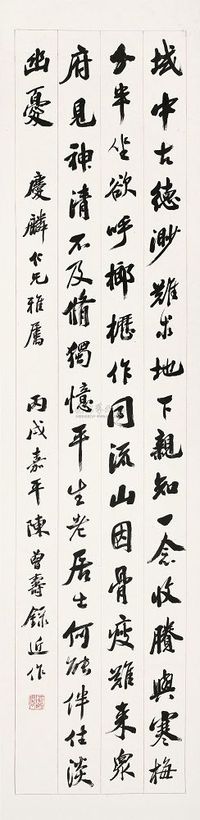 域中古德渺難求地下親知一念收賸與寒梅
分半坐欲呼楖櫪作同流山因骨瘦難來衆
府見神清不及脩獨憶平生老居士何能伴住淡
幽憂 慶麟仁兄雅屬 丙戌嘉平陳曾壽錄近作